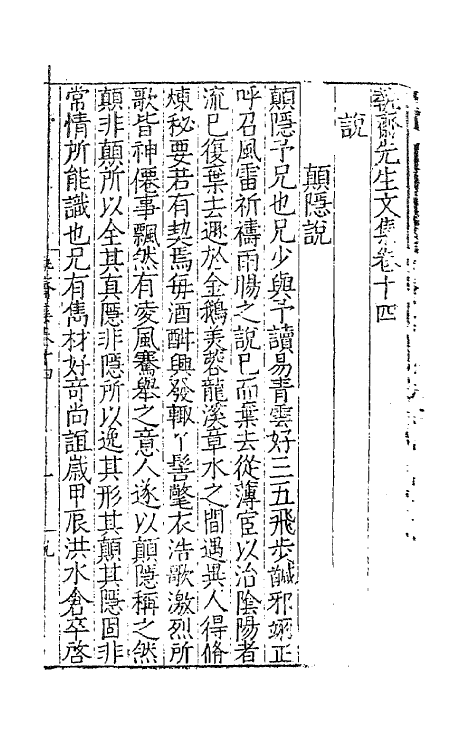 執齋先生文集卷十四
說
顛隱說
顛隱予兄也兄少與予讀易青雲好三五飛步馘邪翊正
呼召風雷祈禱雨暘之說巳而棄去從薄宦以治陰陽者
流巳復棄去遯於金鵝芙蓉龍溪章水之間遇異人得脩
煉秘要若有契焉每酒酣興發輙丫髻氅衣浩歌激烈所
歌皆神僊事飄然有凌風騫舉之意人遂以顛隱稱之然
顛非顛所以全其真隱非隱所以逸其形其顛其隱固非
常情所能識也兄有雋材好奇尚誼歲甲辰洪水倉卒啓